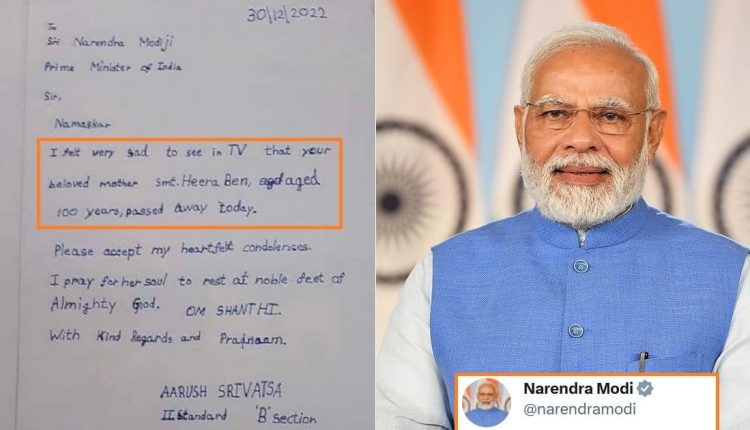 30/12/2022
To
Sri Narendra Modiji
Prime Minister of India
Sir,
Namaskar
I felt very sad to see in TV that your
beloved mother Smt. Heera Ben, aged
100 years, passed away today.
Please accept my heartfelt condolences.
I pray for her soul to rest at noble feet of
Almighty God. OM SHANTHI.
With Kind Regards and
AARUSH SRIVATSA
II Standard 'B' section
Narendra Modi
@narendramodi